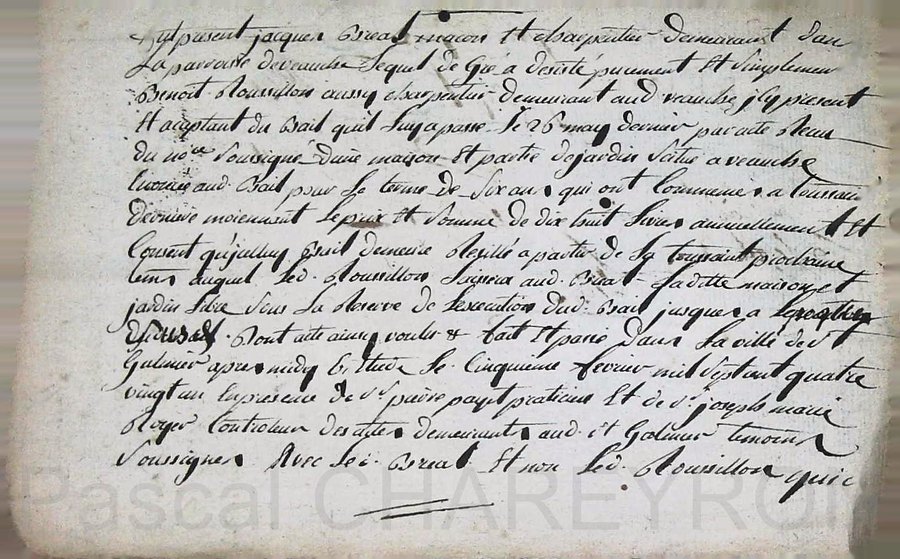 fut present jacques Breat maçon Et charpentier demeurant dans
La parroisse de veauche Lequel de Gré a desisté purement Et Simplement
Benoit Roussillon aussy charpentier demeurant aud veauche, icy present
Et aceptant du Bail quil Luy a passé Le 26 may dernier par acte Receu
du no.re Soussigné d'une maison Et partie de jardin Situé a veauche
Enoncé aud. Bail pour Le terme de Six ans qui ont Commencé a toussaint
derniere moienant Le prix Et Somme de dix huit Livres annuellement Et
Consent qu'jcelluy Bail demeure Resillé a partir de La toussaint prochaine
tems auquel Led. Roussillon Laissera aud. Breat Laditte maison et
jardin Libre Sous La Reserve de Lexecution dud. Bail jusques a
Dont acte ainsy voulu & fait Et passé Dans La ville de St
Galmier apres midy Etude Le Cinquieme fevrier mil Sept cent quatre
vingt un En presence de Sr pierre payet praticien Et de Sr joseph marie
Royer Controleur des actes demeurants aud. St Galmier temoins
Soussignés Avec Led. Breat Et non Led. Roussillon qui
Pascal CHAREYRON